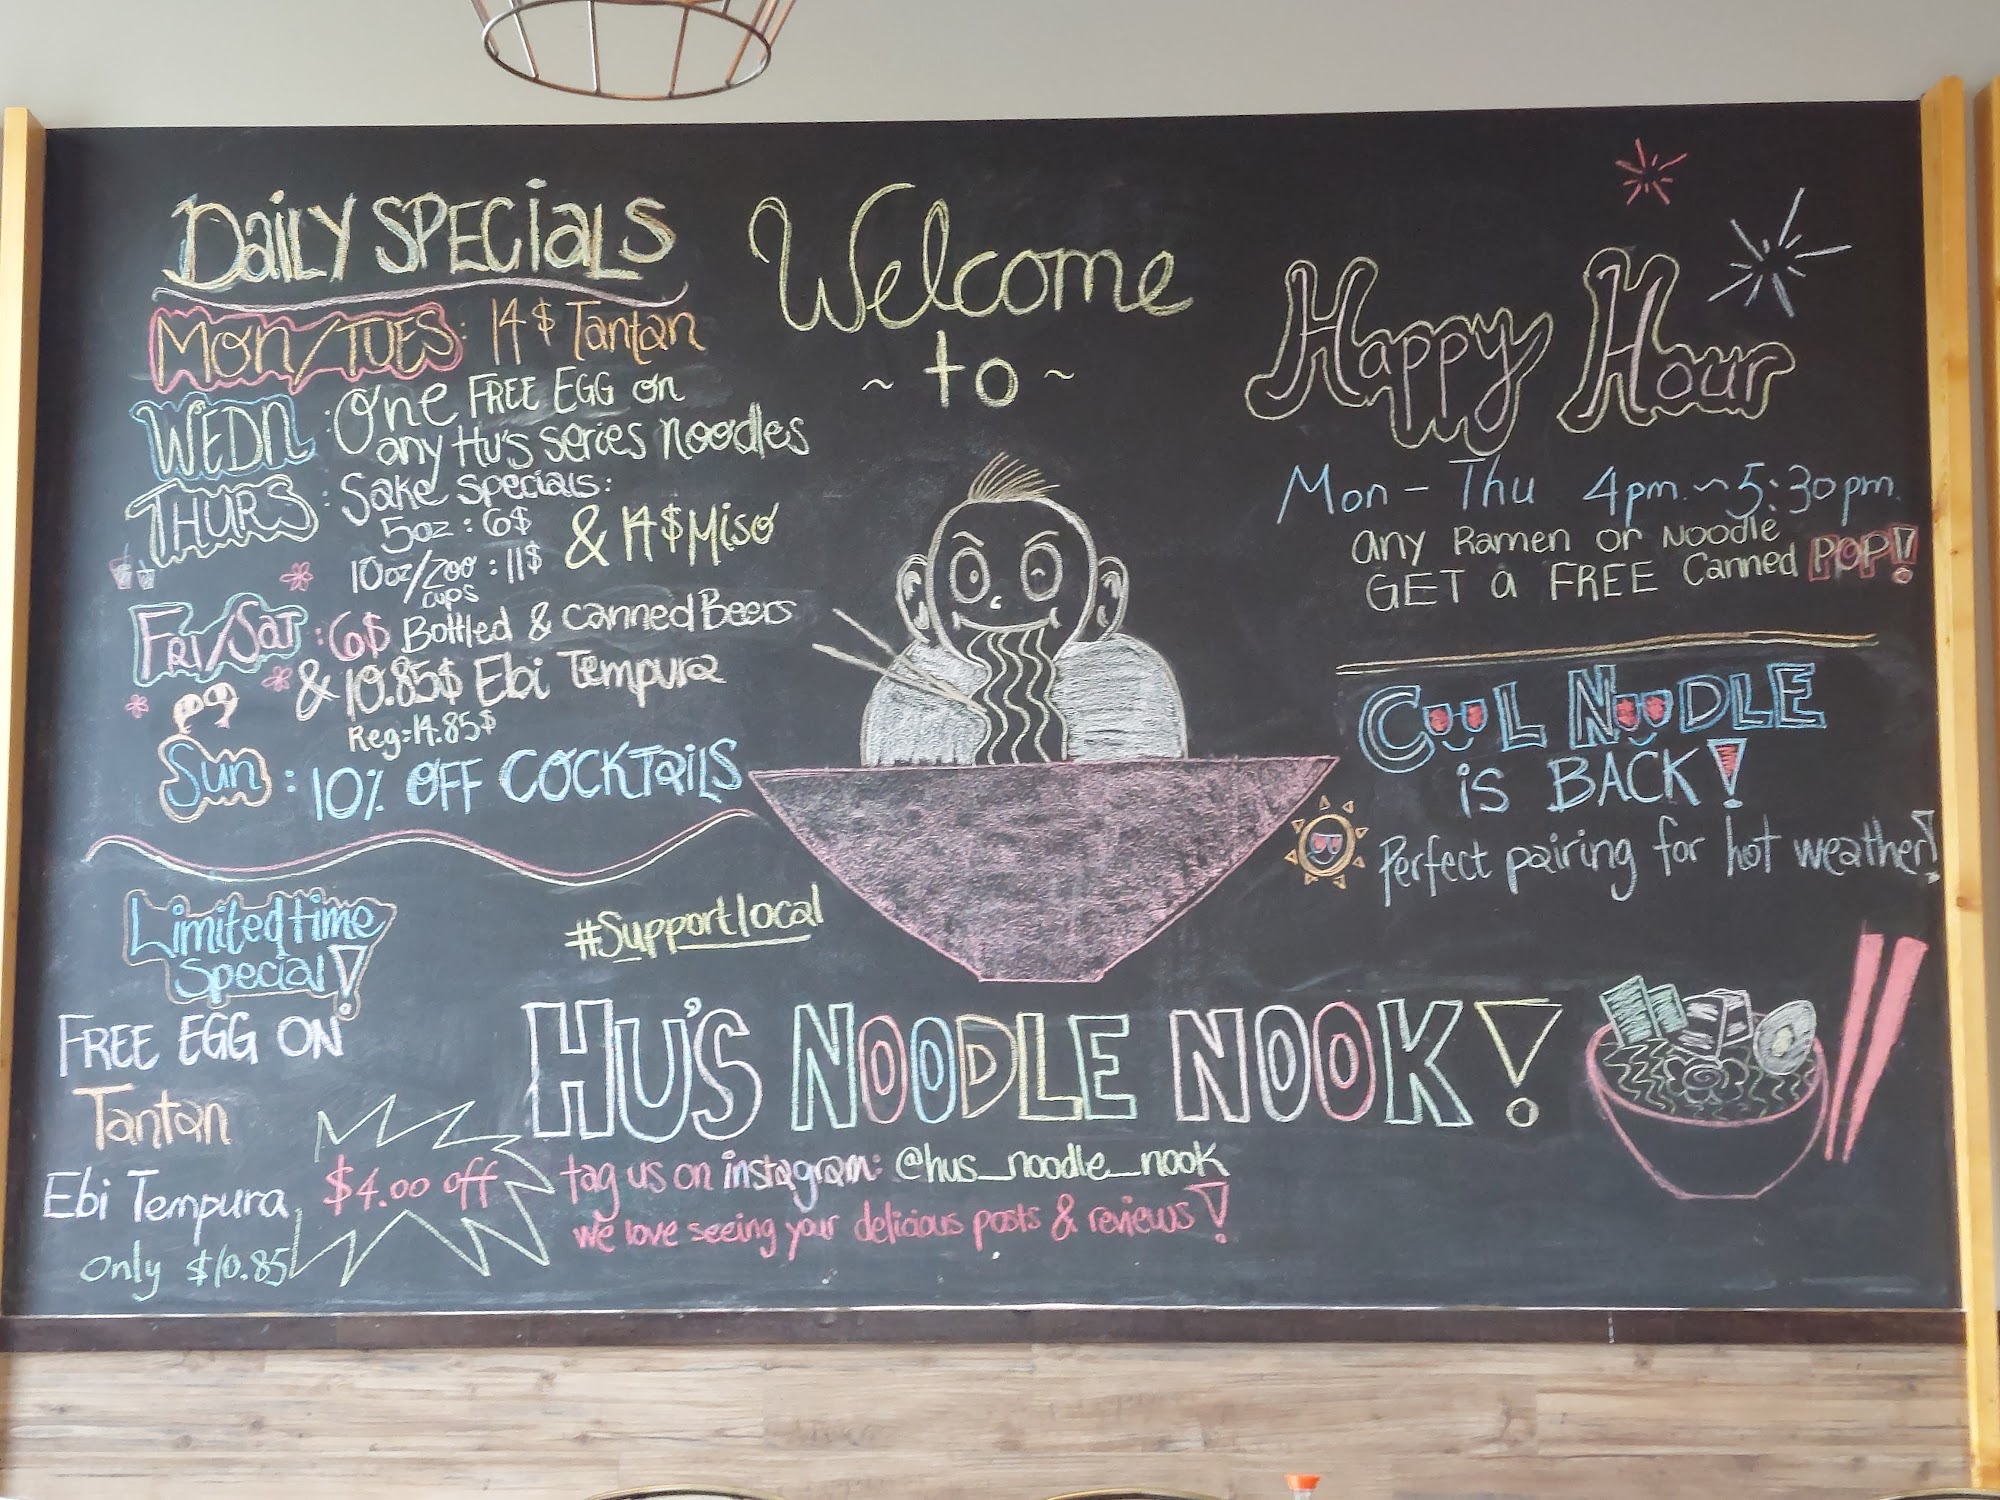 Daily Specials
Mon/Tues: 14$ Tantan
Wedn: One FREE EGG on
any Hu's series noodles
Thurs: Sake specials:
5oz: 6$ & 14$ Miso
10oz/Zoo: 11$
cups
Fri/Sat: 6$ Bottled & canned Beers
& 10.85$ Ebi Tempura
Reg: 14.85$
Sun: 10% OFF COCKTAILS
Limited time
Special!
FREE EGG ON
Tantan
Ebi Tempura
only $10.85
$4.00 off
Welcome
~ to ~
#Supportlocal
HU'S NOODLE NOOK!
tag us on instagram: @hus_noodle_nook
we love seeing your delicious posts & reviews!
Happy Hour
Mon - Thu 4pm ~ 5:30pm.
any Ramen or Noodle
GET a FREE Canned POP!
CUUL NUUDLE
is BACK!
Perfect pairing for hot weather!